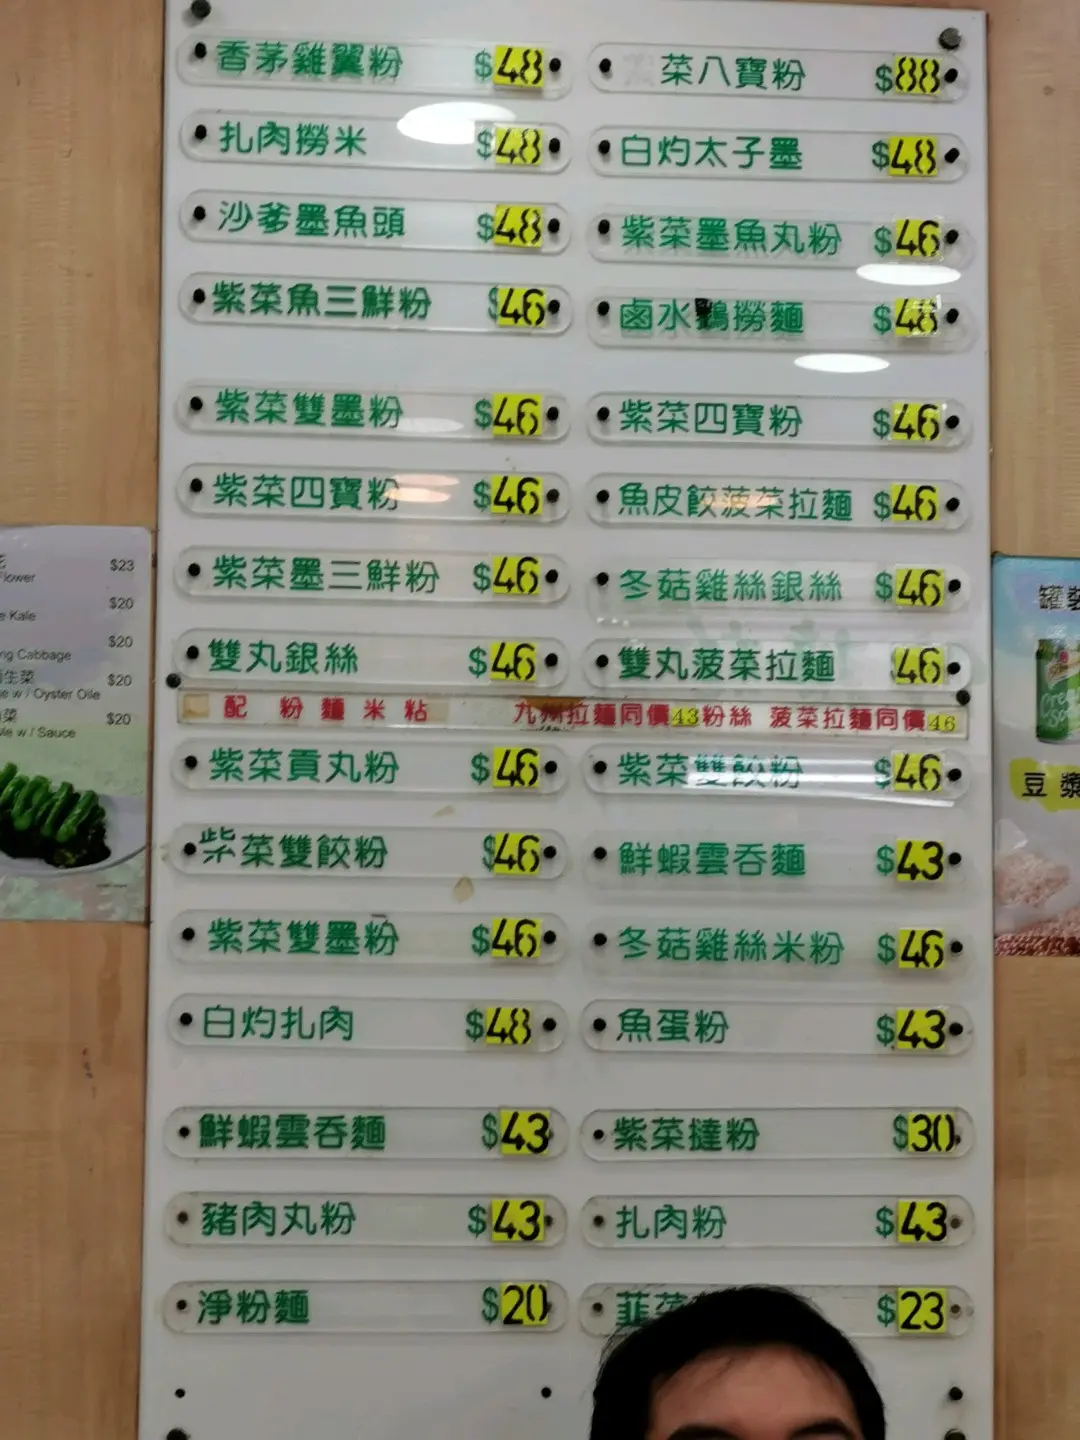 香茅雞翼粉 $48
菜八寶粉 $88
扎肉撈米 $48
白灼太子墨 $48
沙爹墨魚頭 $48
紫菜墨魚丸粉 $46
紫菜魚三鮮粉 $46
鹵水鵝撈麵 $48
紫菜雙墨粉 $46
紫菜四寶粉 $46
紫菜四寶粉 $46
魚皮餃菠菜拉麵 $46
紫菜墨三鮮粉 $46
冬菇雞絲銀絲 $46
雙丸銀絲 $46
雙丸菠菜拉麵 46
配 粉麵米粘 九州拉麵同價43粉絲 菠菜拉麵同價46
紫菜貢丸粉 $46
紫菜雙餃粉 $46
紫菜雙餃粉 $46
鮮蝦雲吞麵 $43
紫菜雙墨粉 $46
冬菇雞絲米粉 $46
白灼扎肉 $48
魚蛋粉 $43
鮮蝦雲吞麵 $43
紫菜撻粉 $30
豬肉丸粉 $43
扎肉粉 $43
淨粉麵 $20
韮菜 $23
$23
Flower
$20
Kale
$20
Cabbage
生菜 $20
w / Oyster Oile
菜 $20
w / Sauce
罐裝
豆漿